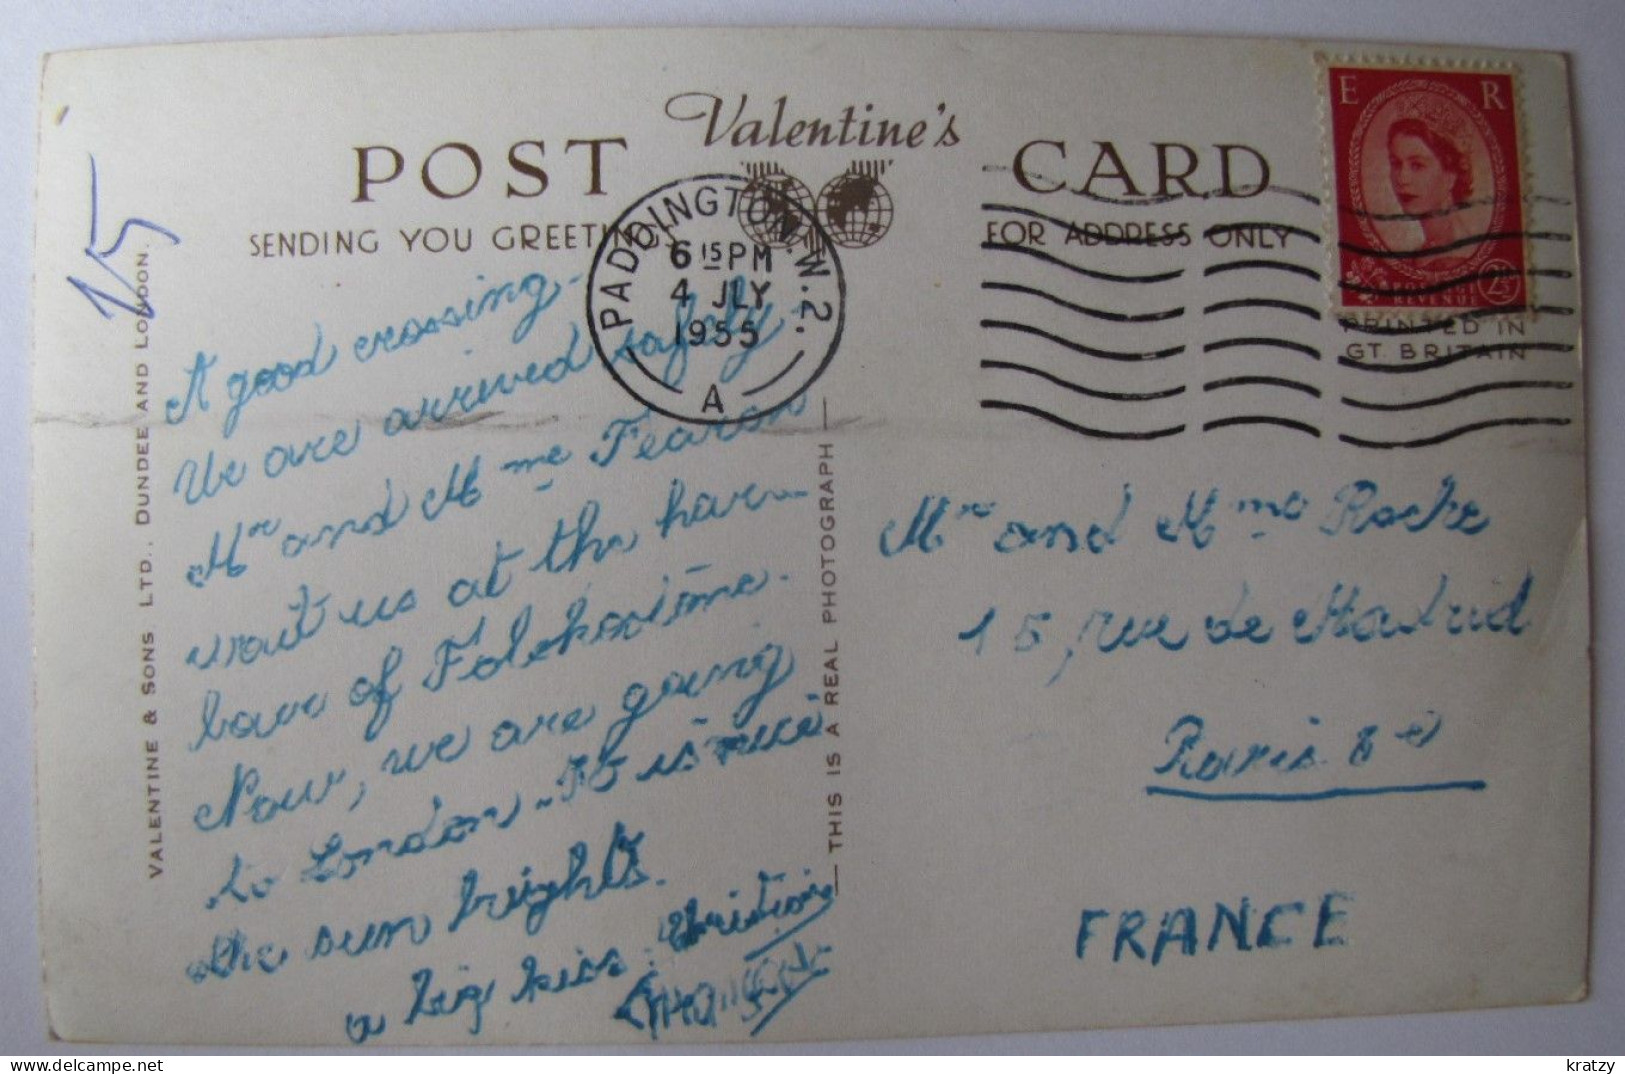 Valentine's
POST CARD
SENDING YOU GREETINGS
FOR ADDRESS ONLY
PADDINGTON. W.2.
6 15 PM
4 JLY
1955
A
E R
POSTAGE
REVENUE
2½D
PRINTED IN
GT. BRITAIN
15
VALENTINE & SONS LTD., DUNDEE AND LONDON.
THIS IS A REAL PHOTOGRAPH
A good crossing -
We are arrived safely -
Mr and Mme Fearon
wait us at the har-
bour of
Now, we are going
to London - It is nice
the sun brights.
a big kiss. Christian
Mr and Mme Roche
15, rue de Madrid
Paris 8e
FRANCE
kratzy